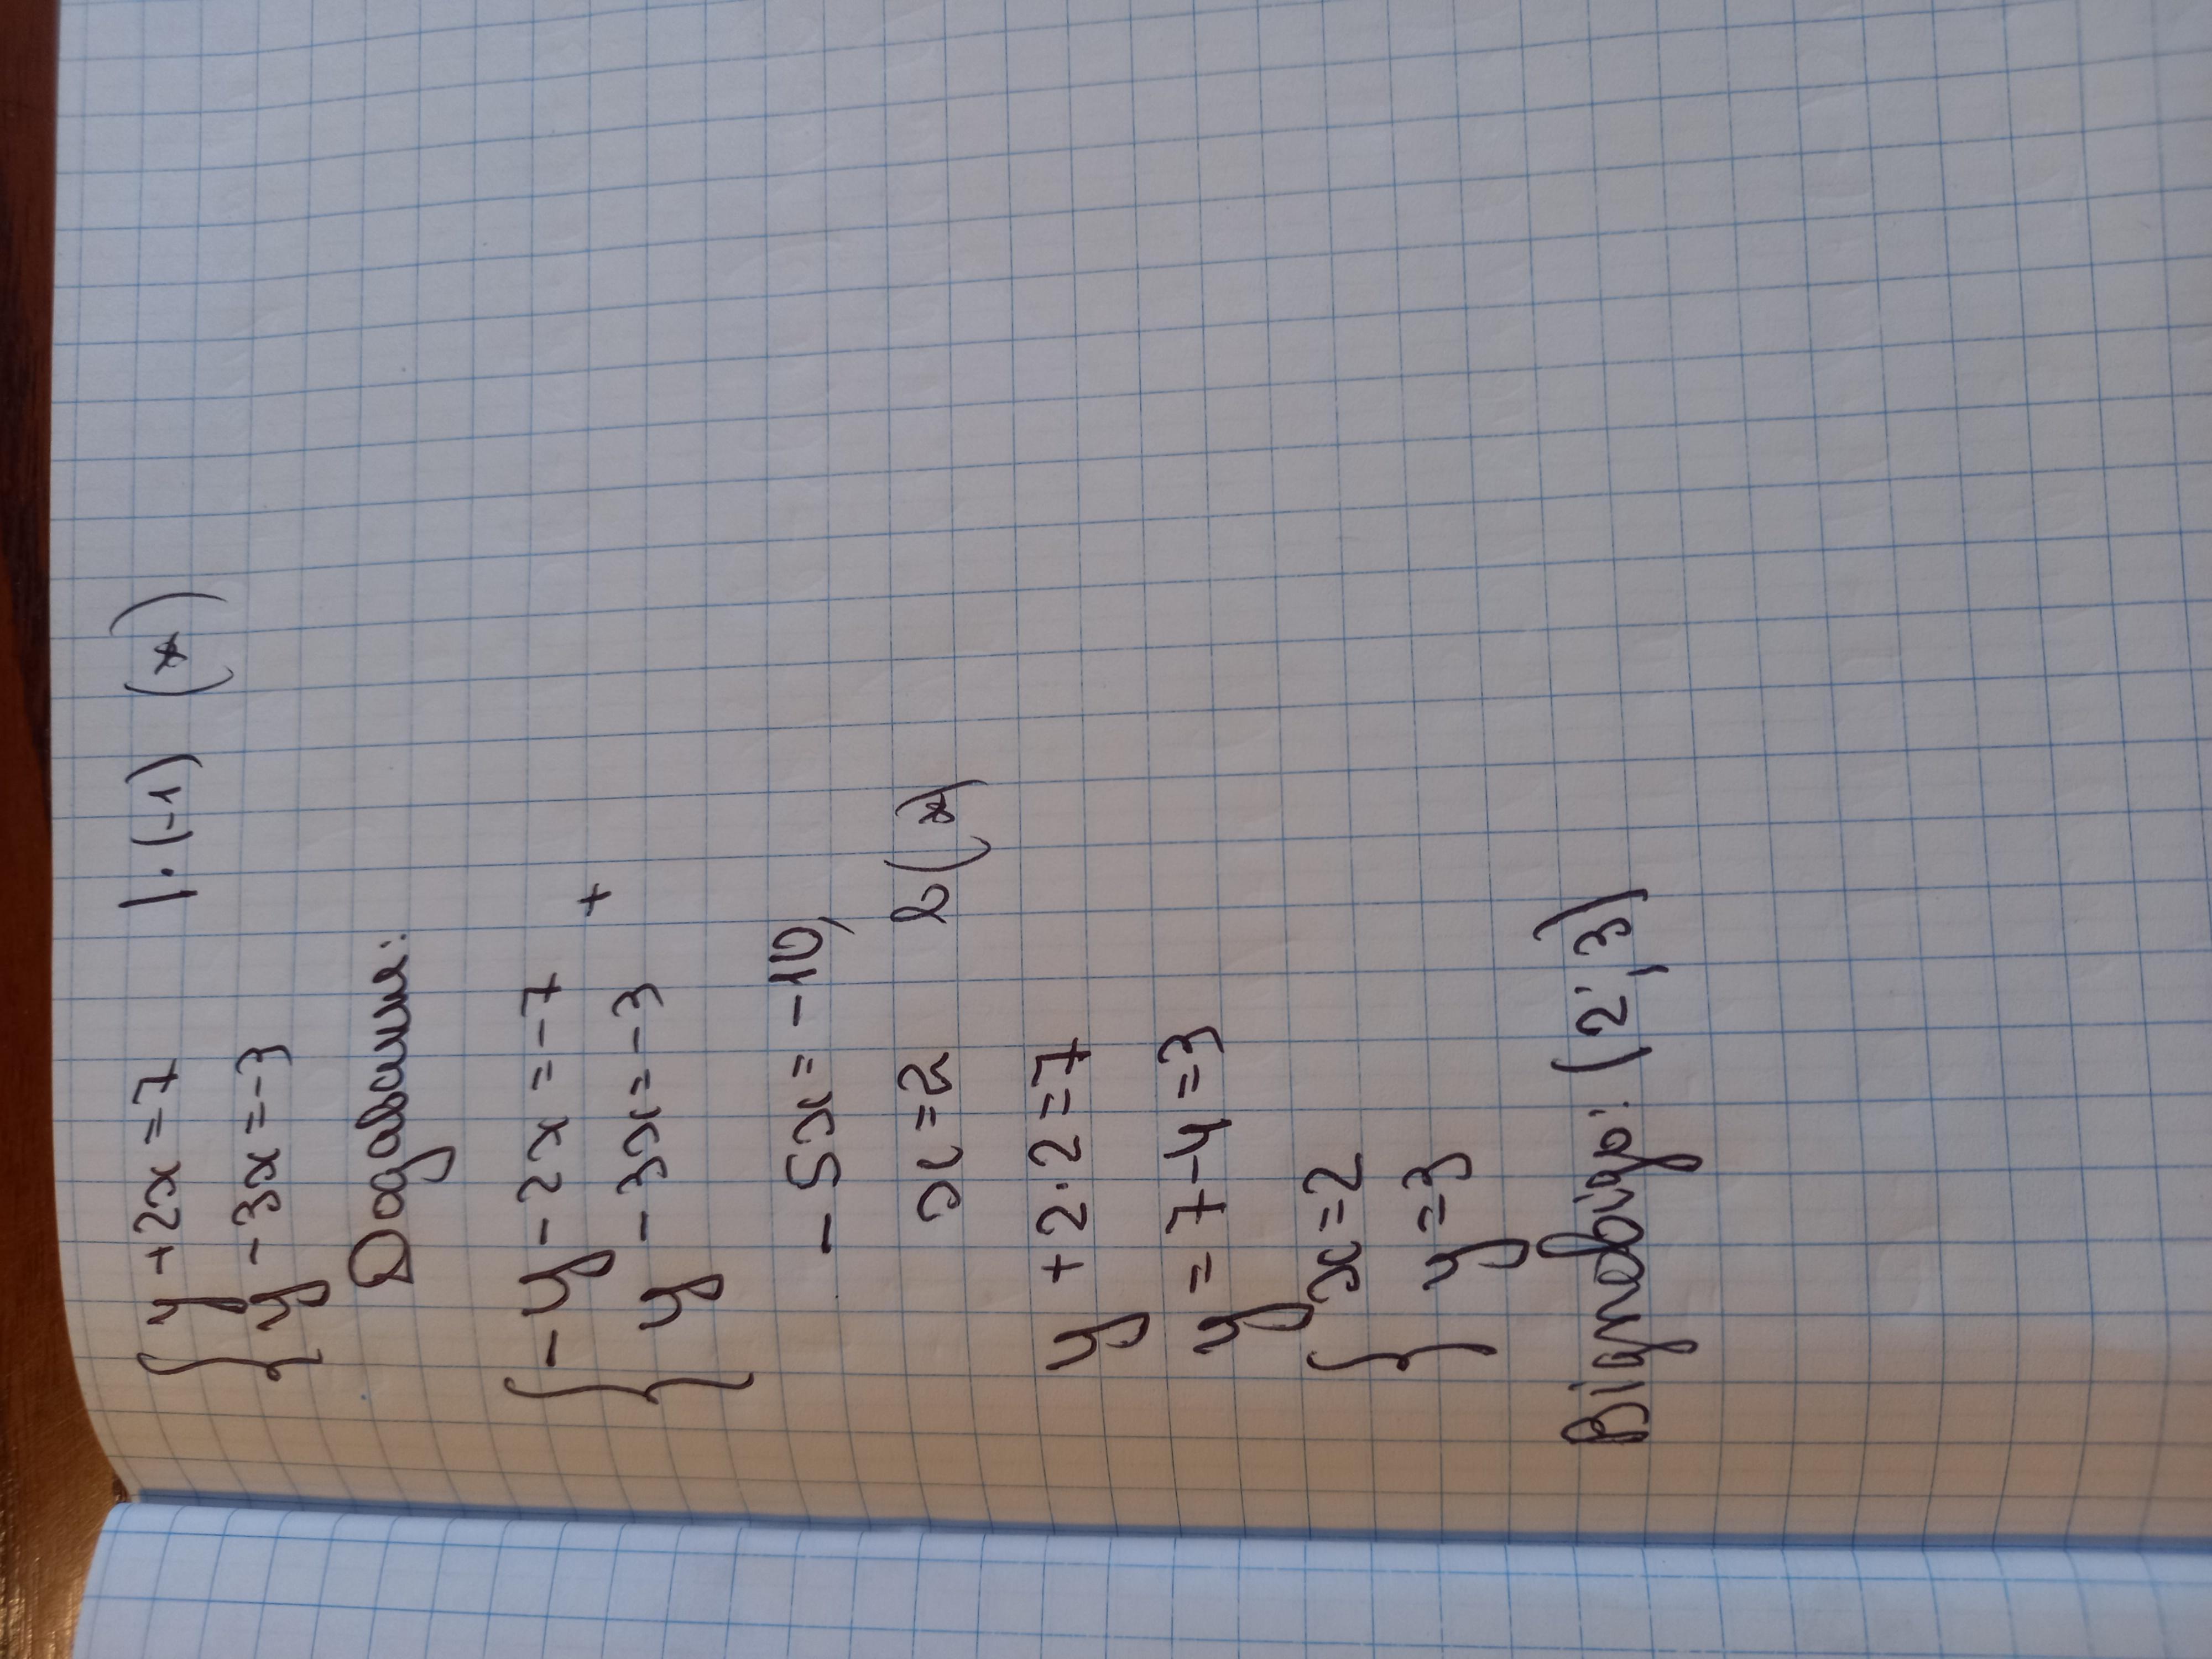 { y + 2x = 7 | · (-1) (*)
y - 3x = -3
Додавання:
{ -y - 2x = -7
y - 3x = -3 +
- 5x = -10,
x = 2 в (*)
y + 2 · 2 = 7
y = 7 - 4 = 3
{ x = 2
y = 3
Відповідь: (2; 3)